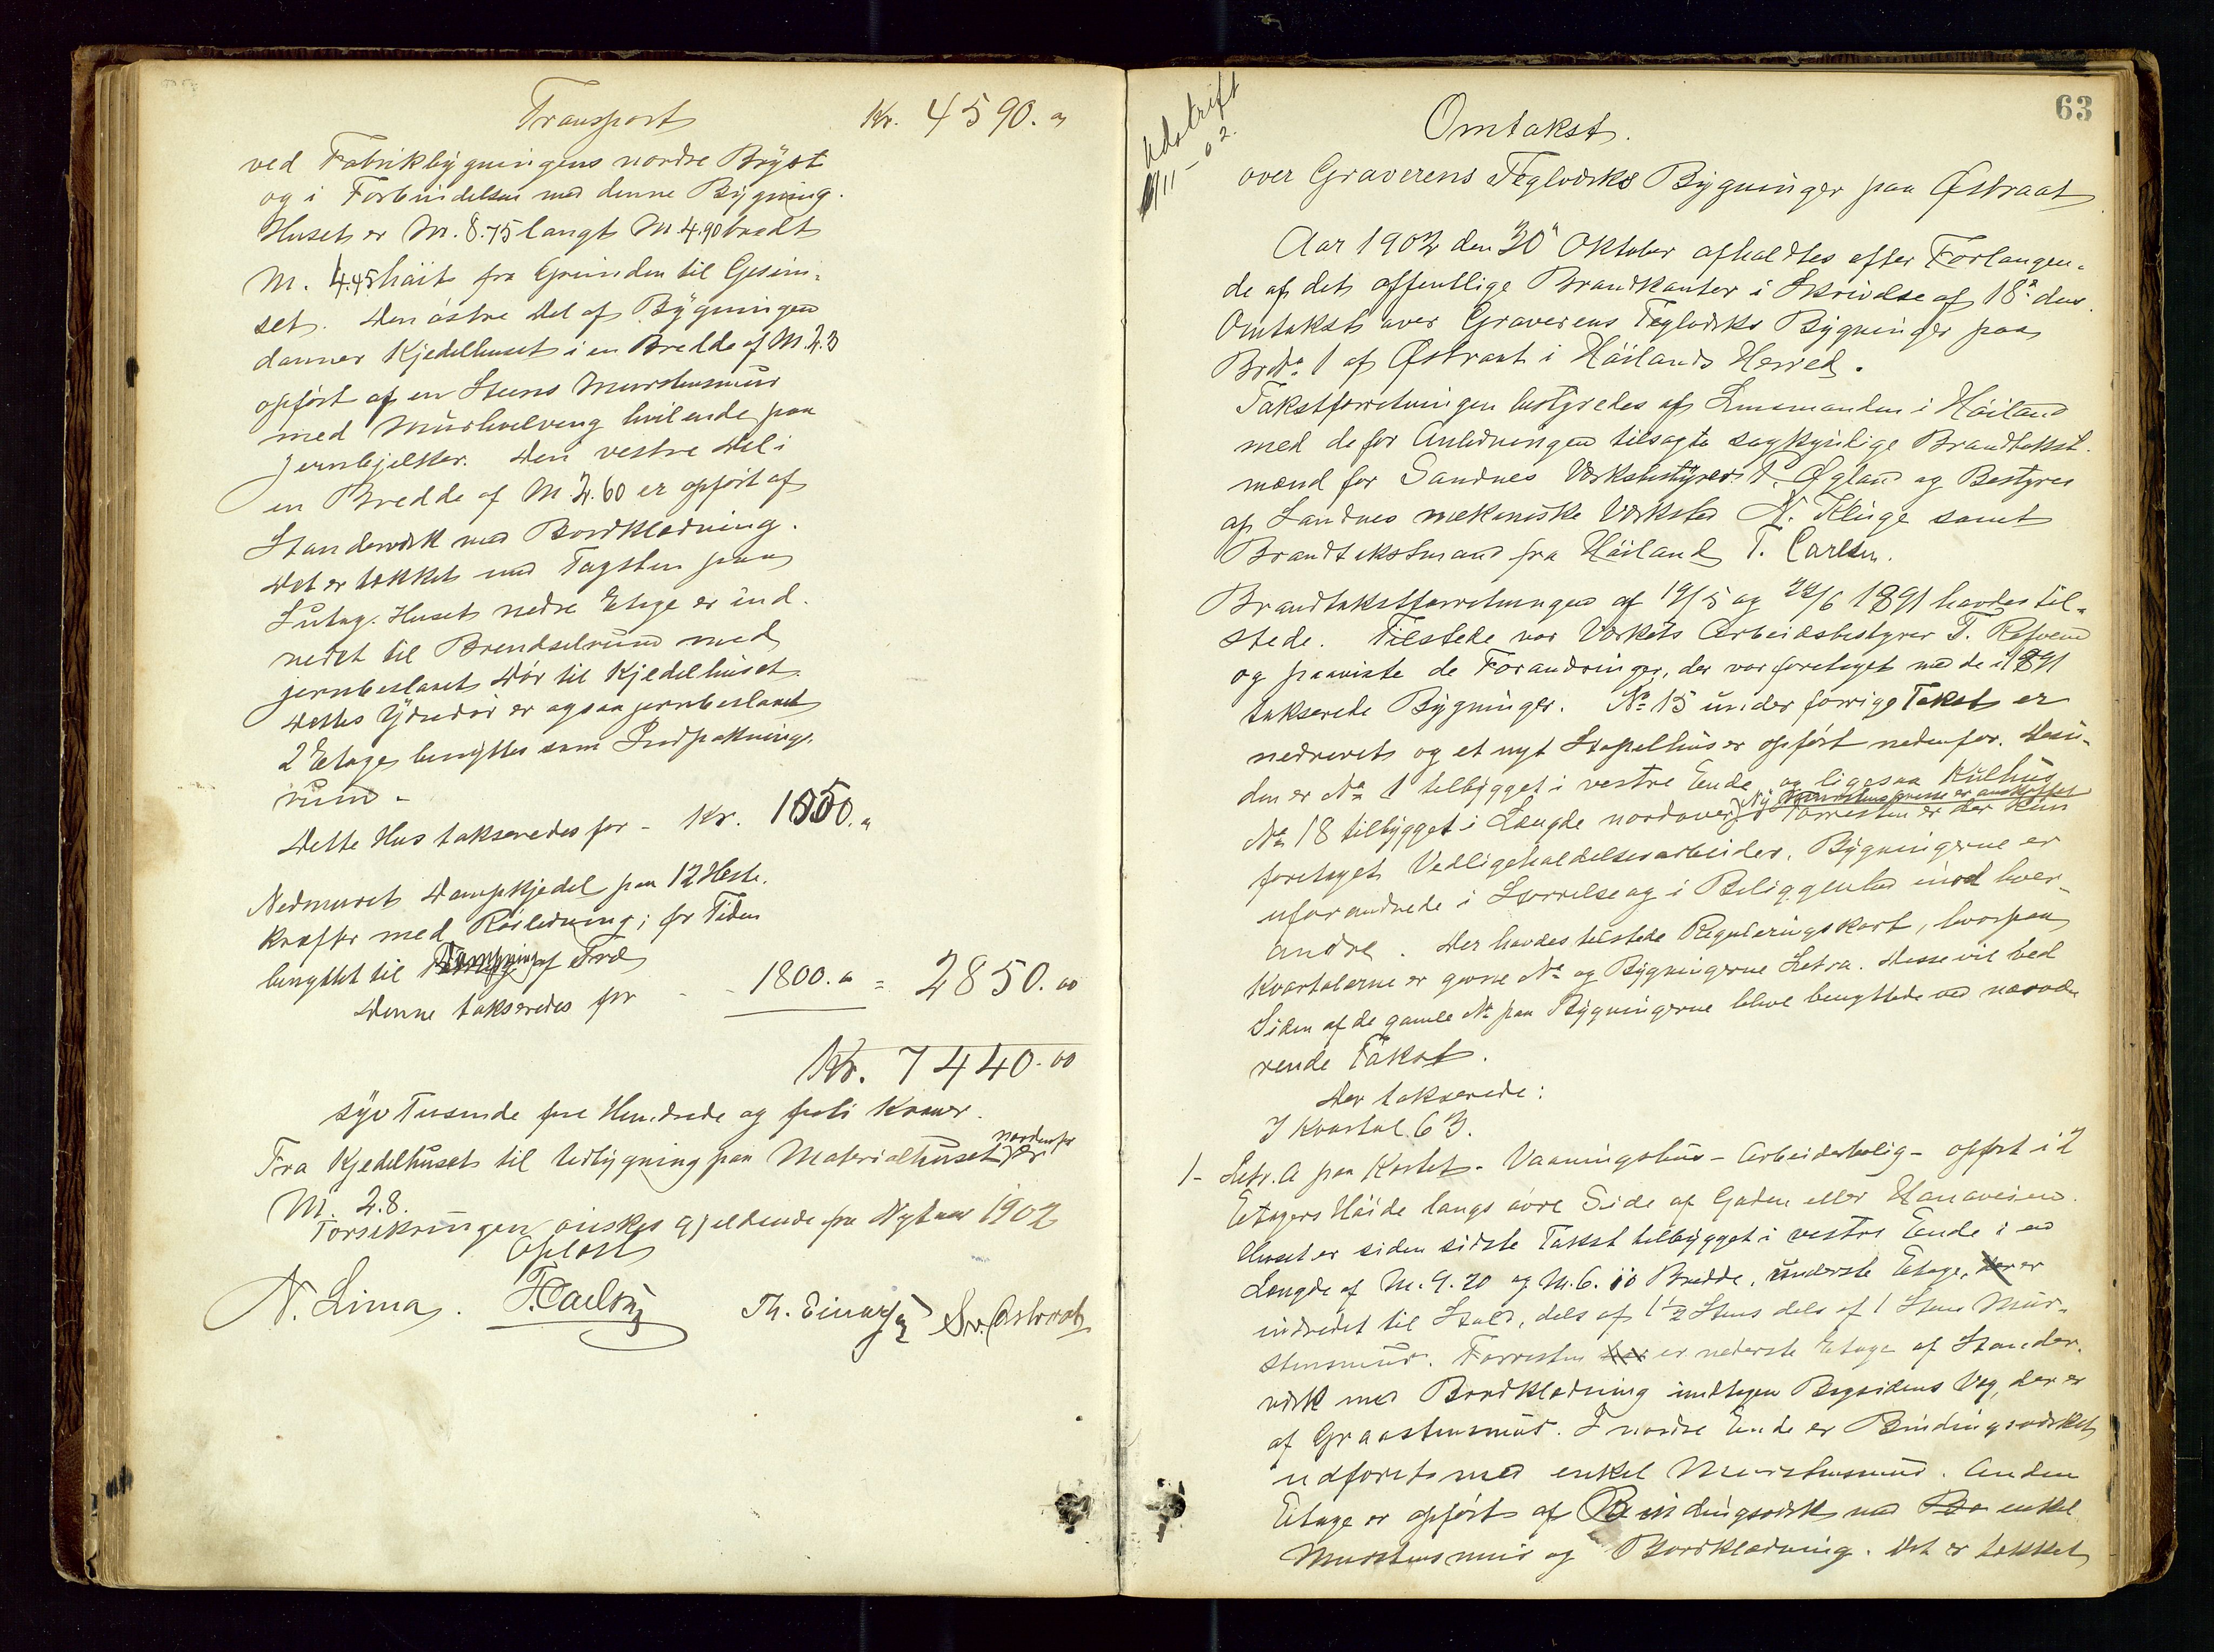 Transport Kr. 4590.
ved Fabrikbygningens nordre Bryst
og i Forbindelsen med denne Bygning.
Huset er M. 8.75 langt M. 4.90 bredt
M. 4.45 høit fra Grunden til Gesim-
set. Den østre Del af Bygningen
danner Kjedelhuset i en Bredde af M. 2.3
opført af en Steens Murstensmur
med Murhvelving hvilende paa
Jernbjelker. Den vestre Del i
en Bredde af M. 2.60 er opført af
Standerværk med Bordklædning.
Det er tækket med Tagsten paa
Sutag. Husets nedre Etage er ind-
redet til Brendselrum med
jernbeslaaet Dør til Kjedelhuset.
Dettes Ydredør er ogsaa jernbeslaaet
2 Etage benyttes som Indpaknings-
rum -
Dette Hus takseredes for - Kr. 1050.
Nedmuret Dampkjedel paa 12 Heste-
kræfter med Rørledning; for Tiden
benyttet til Dampning af Træ
Denne takseredes for - - 1800. = 2850.00
Kr. 7440.00
syv Tusende fire Hundrede og førti Kroner.
Fra Kjedelhuset til Udbygning paa Materialhuset nordenfor er
M. 2.8.
Forsikringen ønskes gjeldende fra Nytaar 1902
Oplæst
N. Lima. T. Carlsen Th. Einarsen Sv. Østraat
63
Udskrift
/11 - 02.
Omtakst.
over Graverens Teglværks Bygninger paa Østraat
Aar 1902 den 30 Oktober afholdtes efter Forlangen-
de af det offentlige Brandkontor i Skrivelse af 18 ds.
Omtakst over Graverens Teglværks Bygninger paa
Br. No 1 af Østraat i Høilands Herred.
Takstforretningen bestyredes af Lensmanden i Høiland
med de for Anledningen tilsagte sagkyndige Brandtakst-
mænd for Sandnes Værksbestyrer Øgland og Bestyrer
af Sandnes mekaniske Værksted N. Kluge samt
Brandtakstmand fra Høiland T. Carlsen.
Brandtakstforretningen af 19/5 og 22/6 1891 havdes til-
stede. Tilstede var Værkets Arbeidsbestyrer T. Refvem
og paaviste de Forandringer, der var foretaget med de i 1891
takserede Bygninger. No 15 under forrige Takst er
nedrevet og et nyt Stapelhus er opført nedenfor. Desu-
den er No 1 tilbygget i vestre Ende og ligesaa Kulhus
No 18 tilbygget i Længde nordover. Ny Murstenspresse er anskaffet Forresten er der kun
foretaget Vedligeholdelsesarbeider. Bygningerne er
uforandrede i Størrelse og i Beliggenhed imod hver-
andre. Der havdes tilstede Reguleringskart, hvorpaa
Kvartalerne er givne No og Bygningerne Letra. Disse vil ved
Siden af de gamle No paa Bygningerne blive benyttede ved nærvæ-
rende Takst.
Der takserede:
I Kvartal 63.
1- Letr. A paa Kartet - Vaaningshus - Arbeiderbolig - opført i 2
Etagers Høide langs øvre Side af Gaden eller Hanaveien.
Huset er siden sidste Takst tilbygget i vestre Ende i en
Længde af M. 9.20 og M. 6.10 Bredde, underste Etage, der er
indredet til Stald, dels af 1½ Stens dels af 1 Stens Mur-
stensmur. Forresten er nederste Etage af Stander-
værk med Bordklædning undtagen Bagsidens Væg, der er
af Graastensmur. I nordre Ende er Bindingsværket
udforet med enkel Murstensmur. Anden
Etage er opført af Bindingsværk med enkel
Murstensmur og Bordklædning. Det er tækket